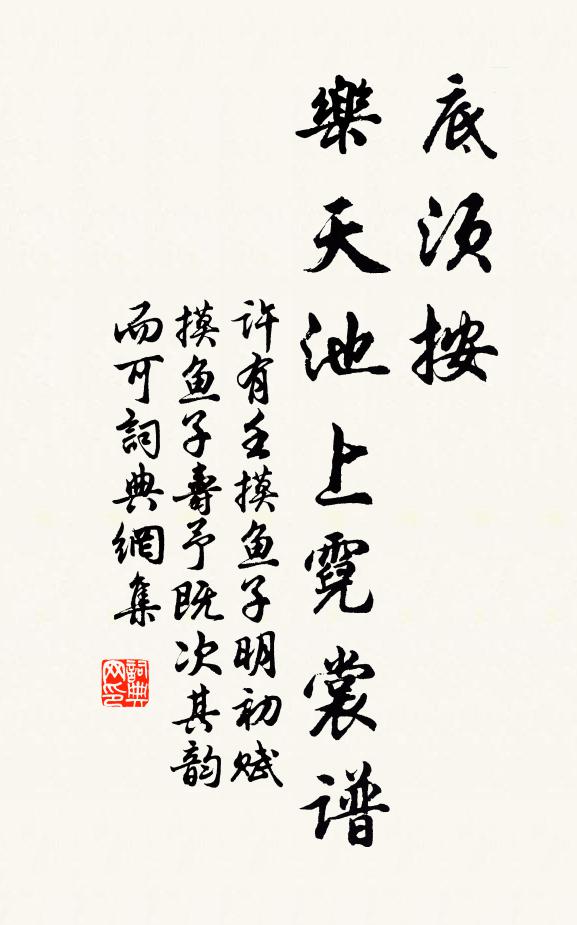 底须按
樂天池上霓裳谱
许有壬摸鱼子明初赋
摸鱼子壽予既次其韵
而可詞典網集
詞典网印